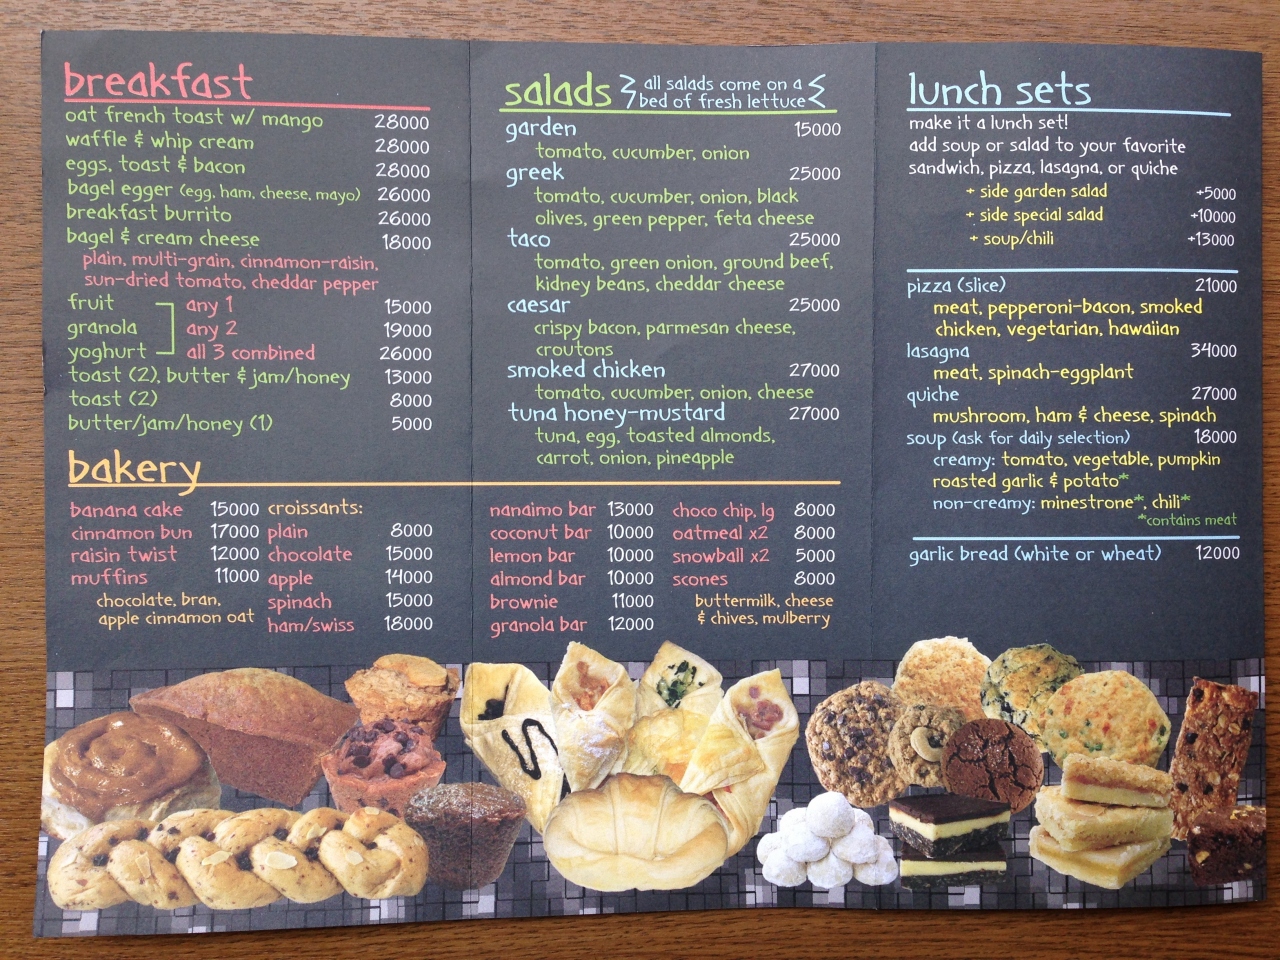 breakfast
oat french toast w/ mango 28000
waffle & whip cream 28000
eggs, toast & bacon 28000
bagel egger (egg, ham, cheese, mayo) 26000
breakfast burrito 26000
bagel & cream cheese 18000
plain, multi-grain, cinnamon-raisin,
sun-dried tomato, cheddar pepper
fruit any 1 15000
granola any 2 19000
yoghurt all 3 combined 26000
toast (2), butter & jam/honey 13000
toast (2) 8000
butter/jam/honey (1) 5000
bakery
banana cake 15000
cinnamon bun 17000
raisin twist 12000
muffins 11000
chocolate, bran,
apple cinnamon oat
croissants:
plain 8000
chocolate 15000
apple 14000
spinach 15000
ham/swiss 18000
nanaimo bar 13000
coconut bar 10000
lemon bar 10000
almond bar 10000
brownie 11000
granola bar 12000
choco chip, lg 8000
oatmeal x2 8000
snowball x2 5000
scones 8000
buttermilk, cheese
& chives, mulberry
salads
all salads come on a
bed of fresh lettuce
garden 15000
tomato, cucumber, onion
greek 25000
tomato, cucumber, onion, black
olives, green pepper, feta cheese
taco 25000
tomato, green onion, ground beef,
kidney beans, cheddar cheese
caesar 25000
crispy bacon, parmesan cheese,
croutons
smoked chicken 27000
tomato, cucumber, onion, cheese
tuna honey-mustard 27000
tuna, egg, toasted almonds,
carrot, onion, pineapple
lunch sets
make it a lunch set!
add soup or salad to your favorite
sandwich, pizza, lasagna, or quiche
+ side garden salad +5000
+ side special salad +10000
+ soup/chili +13000
pizza (slice) 21000
meat, pepperoni-bacon, smoked
chicken, vegetarian, hawaiian
lasagna 34000
meat, spinach-eggplant
quiche 27000
mushroom, ham & cheese, spinach
soup (ask for daily selection) 18000
creamy: tomato, vegetable, pumpkin
roasted garlic & potato*
non-creamy: minestrone*, chili*
*contains meat
garlic bread (white or wheat) 12000